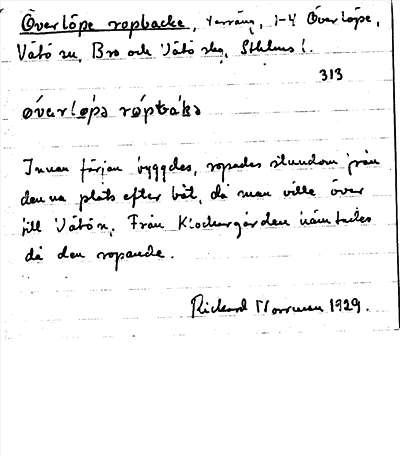 Överlöpe ropbacke, terräng, 1-4 Överlöpe,
Vätö sn, Bro och Vätö skg, Sthlms l.
313
ǿvərlǿpə rópbàkə
Innan färjan byggdes, ropades stundom från
denna plats efter båt, då man ville över
till Vätön. Från Klockargården hämtades
då den ropande.
Rickard Norrman 1929.